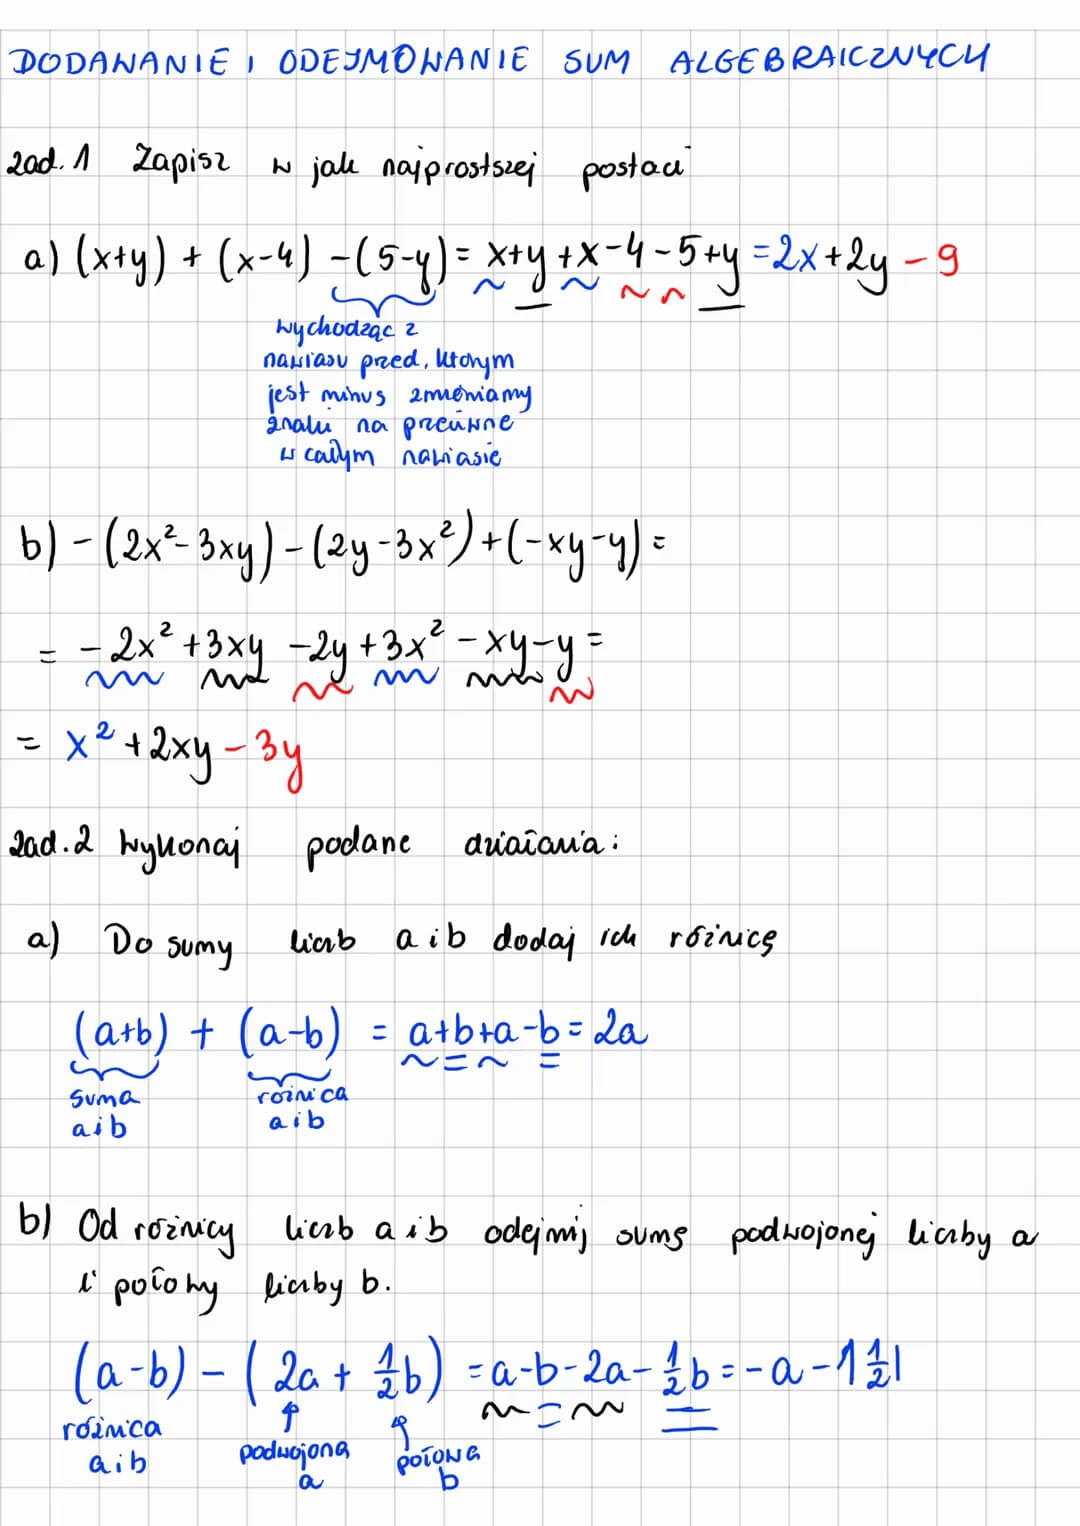 DODAWANIE I ODEJMOWANIE SUM ALGEBRAICZNYCH
zad. 1 Zapisz w jak najprostszej postaci
a) (x+y) + (x-4) -(5-y)= x+y+x-4-5+y =2x+2y-9
wychodząc z
nawiasu przed, którym
jest minus zmieniamy
znaki na przeciwne
w całym nawiasie
b) -(2x²-3xy)-(2y-3x²)+(-xy-y)=
= -2x²+3xy -2y+3x² -xy-y=
= x²+2xy-3y
zad.2 Wykonaj podane działania:
a) Do sumy liczb a i b dodaj ich różnicę
(a+b) + (a-b) = a+b+a-b=2a
suma różnica
a i b a i b
b) Od różnicy liczb a i b odejmij sumę podwojonej liczby a
i połowy liczby b.
(a-b) - (2a+ ½b) =a-b-2a-½b=-a-1½
różnica podwojona połowa
a i b a b